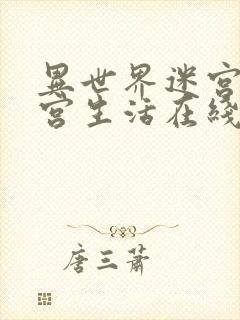 異世界迷宮
宮生活在綫
唐三蕭